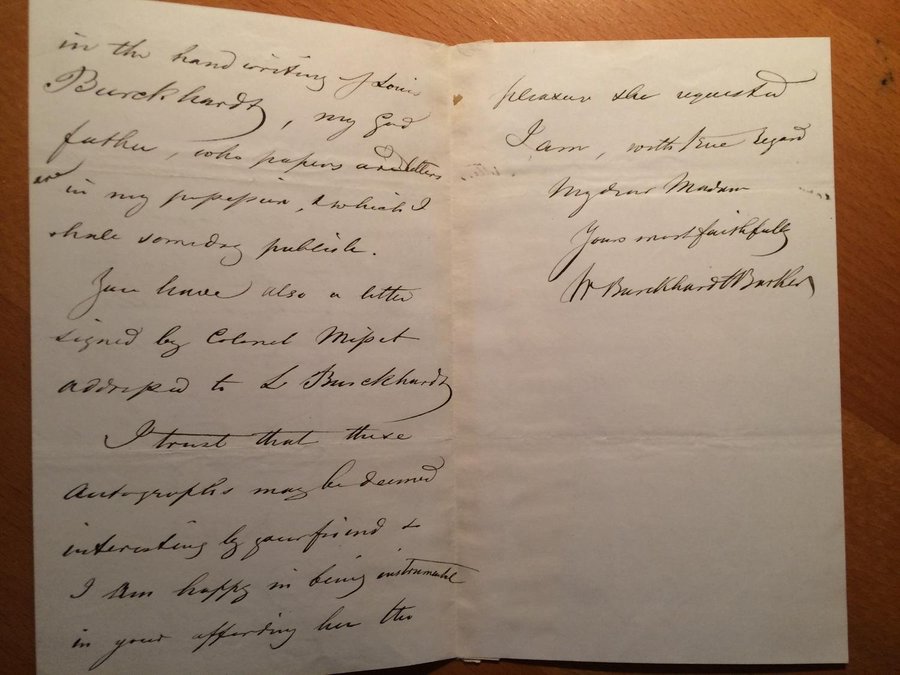 in the handwriting of Louis
Burckhardt, my God
father, who papers and letters
are in my possession, & which I
shale someday publish.
You have also a letter
signed by Colonel Misset
addressed to L Burckhardt
I trust that these
autographs may be deemed
interesting by your friend &
I am happy in being instrumental
in your affording her the
pleasure she requested
I am, with true regard
My dear Madam
Yours most faithfully
W Burckhardt Barker